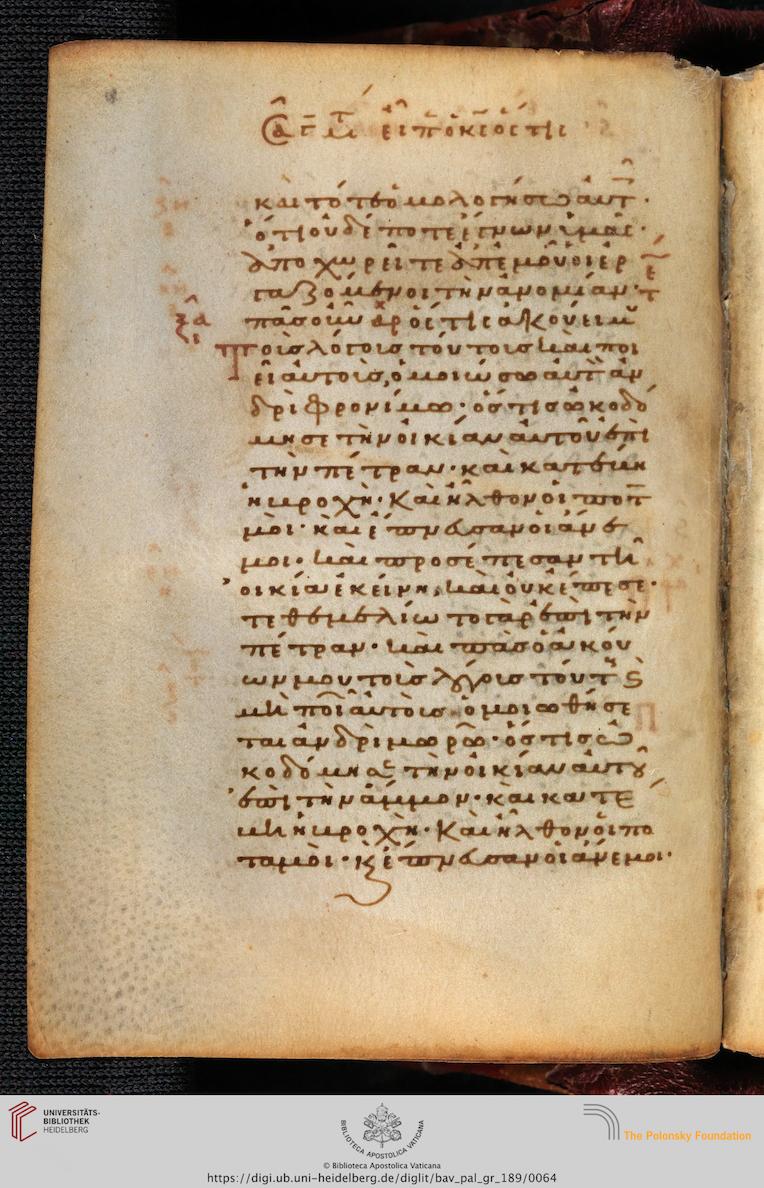 και τότε ὁμολογήσω αὐτ
ὅτι οὐδέποτε ἔγνων ὑμᾶς·
ἀποχωρεῖτε ἀπ' ἐμοῦ οἱ ἐρ
γαζόμενοι τὴν ἀνομίαν·
πᾶς οὖν ὅστις ἀκούει μ
τοὺς λόγους τούτους καὶ ποι
εῖ αὐτοὺς, ὁμοιώσω αὐτὸν ἀν
δρὶ φρονίμω· ὅστις ὠκοδό
μησε τὴν οἰκίαν αὐτοῦ ἐπὶ
τὴν πέτραν· καὶ κατέβη
ἡ βροχὴ· καὶ ἦλθον οἱ ποτ
μοὶ· καὶ ἔπνευσαν οἱ ἄνε
μοι· καὶ προσέπεσαν τῆ
οἰκία ἐκείνη, καὶ οὐκ ἔπεσε·
τεθεμελίωτο γὰρ ἐπὶ τὴν
πέτραν· καὶ πᾶς ὁ ἀκού
ων μου τοὺς λόγους τούτ
μὴ ποιῶν αὐτοὺς ὁμοιωθήσε
ται ἀνδρὶ μωρῶ· ὅστις ὠ
κοδόμησε τὴν οἰκίαν αὐτοῦ
ἐπὶ τὴν ἄμμον· καὶ κατέ
βη ἡ βροχὴ· καὶ ἦλθον οἱ πο
ταμοὶ· κ ἔπνευσαν οἱ ἄνεμοι·
UNIVERSITÄTS-
BIBLIOTHEK
HEIDELBERG
BIBLIOTECA APOSTOLICA VATICANA
The Polonsky Foundation
© Biblioteca Apostolica Vaticana
https://digi.ub.uni-heidelberg.de/diglit/bav_pal_gr_189/0064